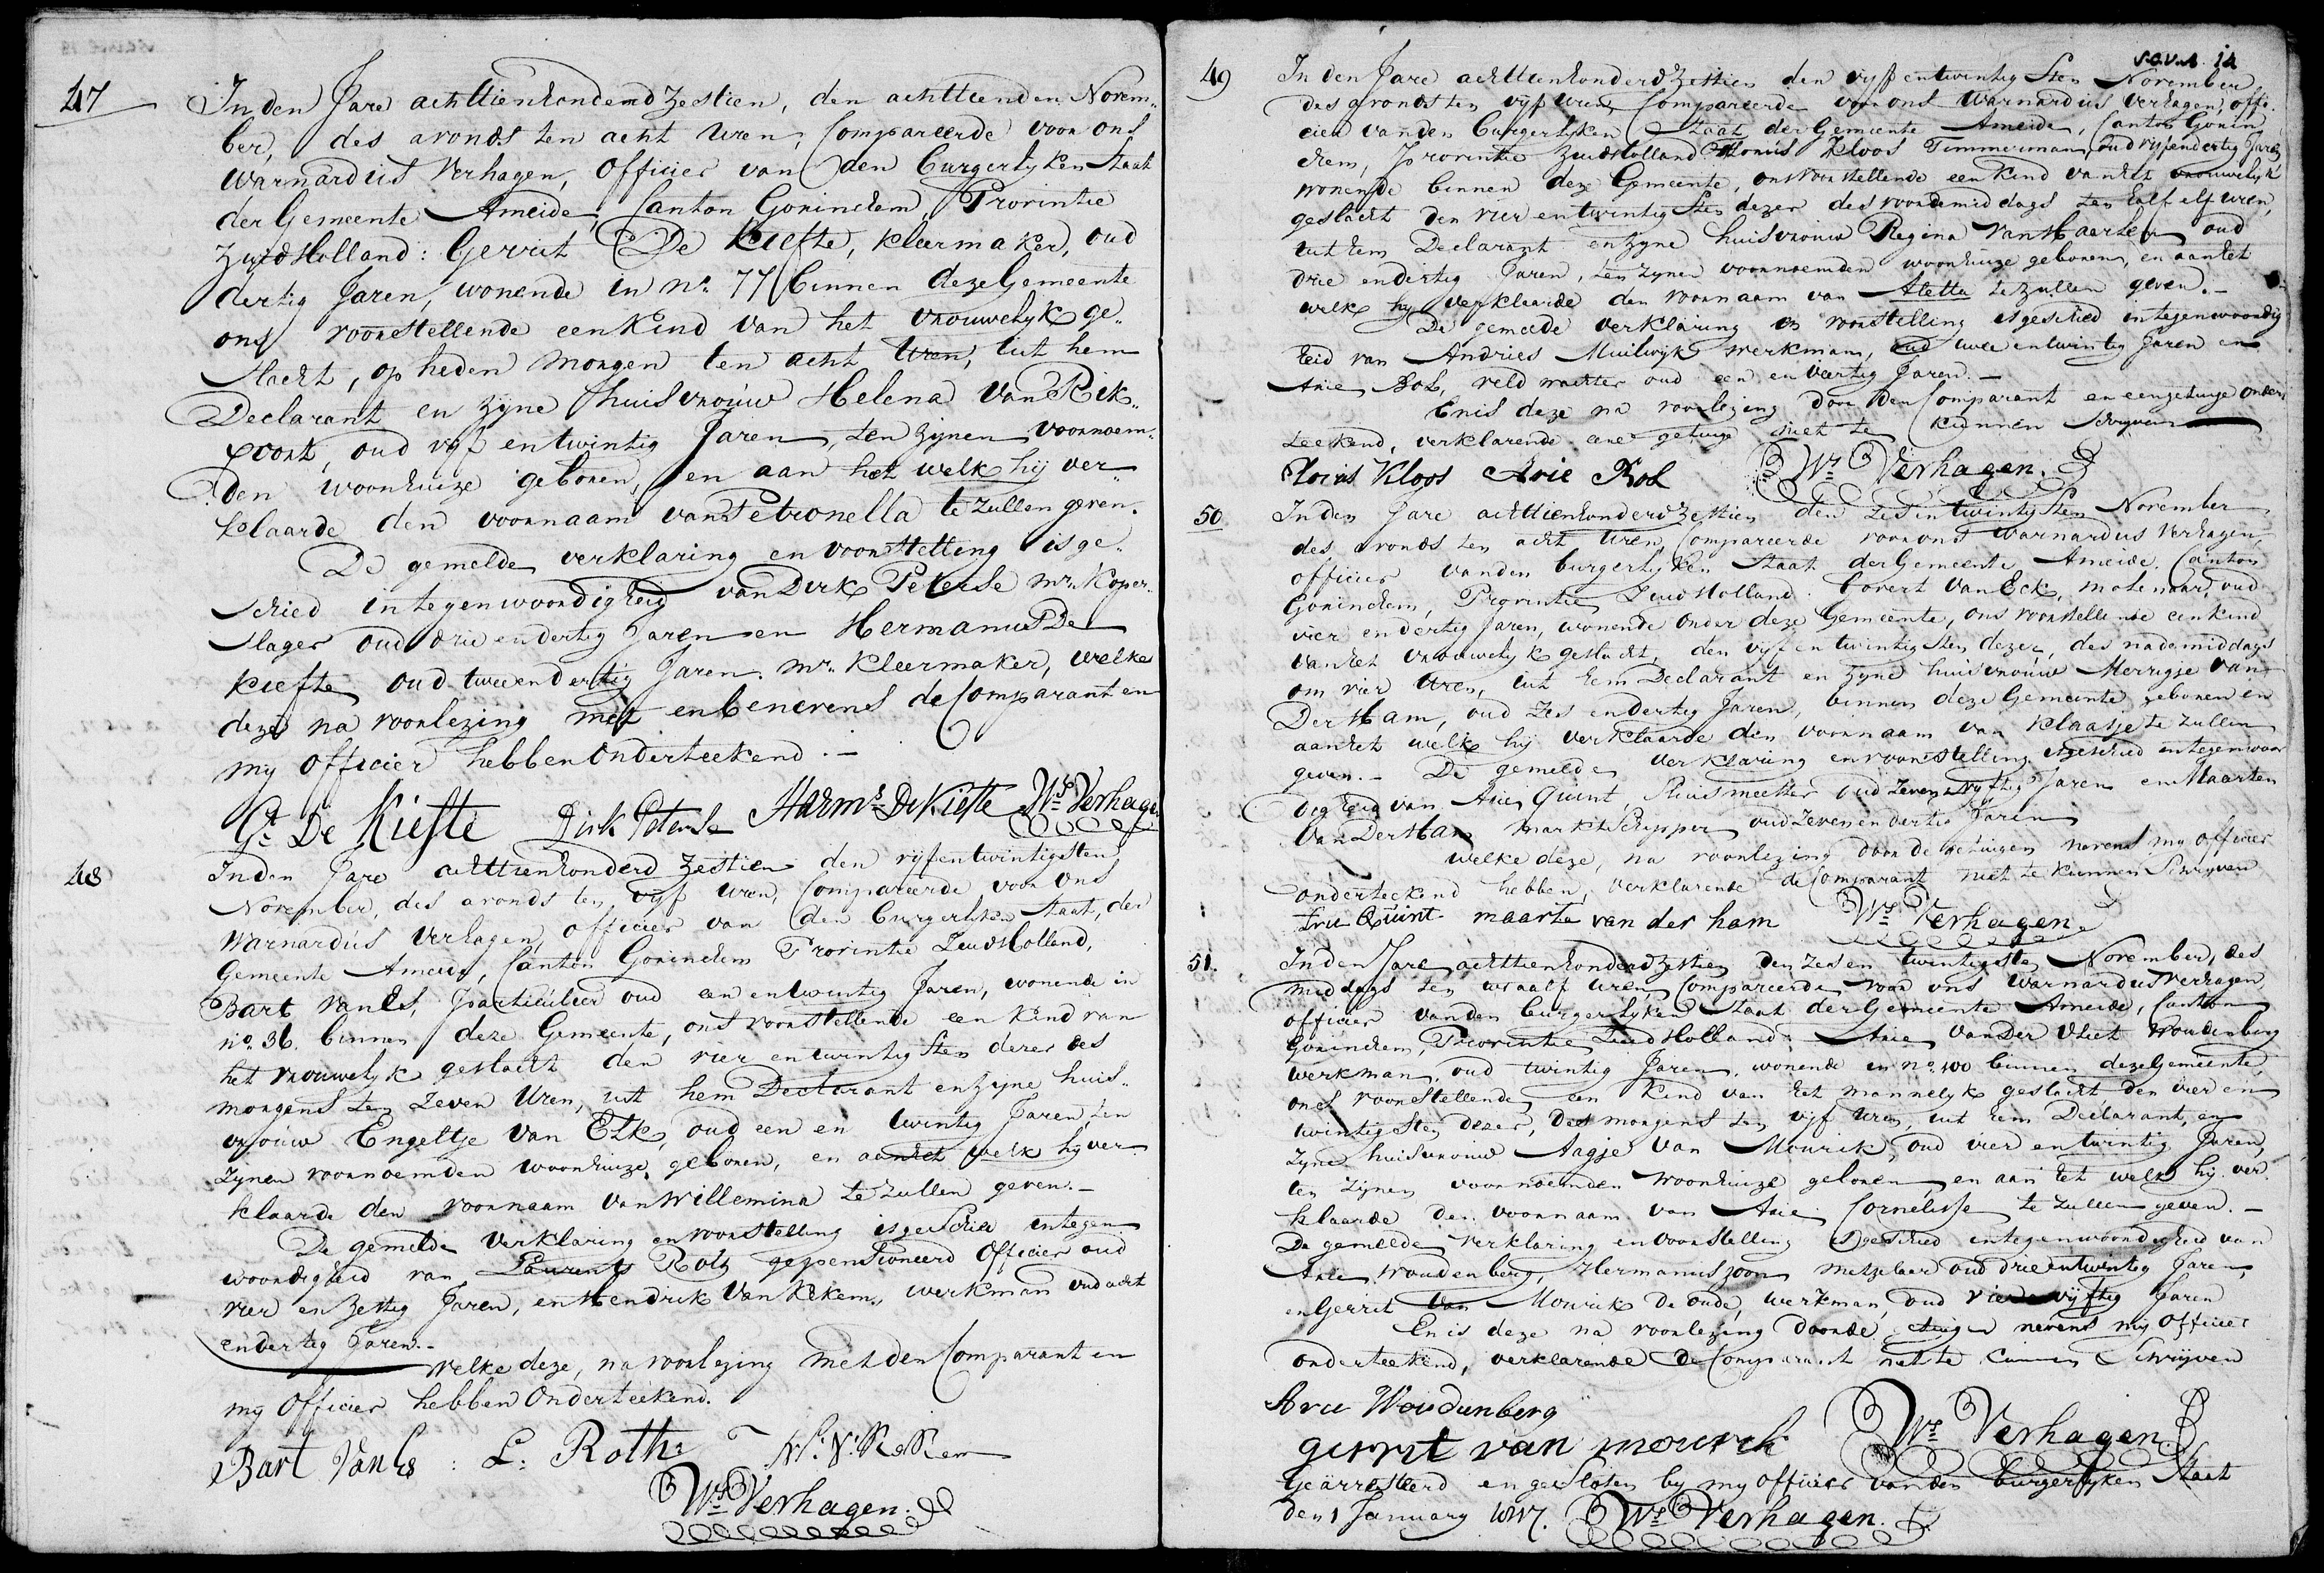 47
In den Jare achttienhonderd Zestien, den achttienden Novem„
ber, des avonds ten acht Uren, Compareerde voor ons
Warnardus Verhagen, Officier van den Burgerlyken Staat
der Gemeente Ameide, Canton Gorinchem, Provintie
Zuid Holland: Gerrit De Kiefte, kleermaker, oud
dertig Jaren, wonende in No. 77 binnen deze Gemeente
ons voorstellende een Kind van het vrouwelyk ge„
slacht, op heden morgen ten acht Uren, uit hem
Declarant en zyne huisvrouw Helena Van Rik„
voort, oud vyf en twintig Jaren, ten zynen voornoem„
den woonhuize geboren, en aan het welk hij ver„
klaarde den voornaam van Petronella te zullen geven.
De gemelde verklaring en voorstelling is ge„
schied in tegenwoordigheid van Dirk Peterse mr. Koper„
slager oud drie en dertig Jaren en Hermanus De
Kiefte oud twee en dertig Jaren mr. kleermaker, welke
deze na voorlezing met en benevens de Comparant en
my Officier hebben Onderteekend. —
Gt. De Kiefte Dirk Peterse Harms. De Kiefte Ws. Verhagen
48
In den Jare achttienhonderd Zestien den vyfentwintigsten
November, des avonds ten vyf Uren, Compareerde voor ons
Warnardus Verhagen, officier van den Burgerlyken Staat, der
Gemeente Ameide, Canton Gorinchem Provintie Zuid Holland,
Bart Van Es, Particulier oud een en twintig Jaren, wonende in
No. 36. binnen deze Gemeente, ons voorstellende een Kind van
het vrouwelyk geslacht den vier en twintigsten dezer des
morgens ten Zeven Uren, uit hem Declarant en zyne huis„
vrouw Engeltje Van Elk, oud een en twintig Jaren, ten
zynen voornoemden woonhuize geboren, en aan het welk hy ver
klaarde den voornaam van Willemina te zullen geven. —
De gemelde Verklaring en voorstelling is geschied in tegen
woordigheid van Laurents Roth gepensioneerd Officier oud
vier en Zestig Jaren, en Hendrik Van Kekem, werkman oud acht
en dertig Jaren. —
Welke deze, na voorlezing met den Comparant en
my Officier hebben Onderteekend.
Bart Van Es : L: Roth: H: V: KeKem
Ws. Verhagen.
49
In den Jare achttienhonderd Zestien den vyf en twintigsten November
des avonds ten vyf Uren, Compareerde voor ons Warnardus Verhagen, offi.
cier van den Burgerlyken Staat der Gemeente Ameide, Canton Gorin
chem, Provintie Zuid Holland Kloos Timmerman, oud vyf en dertig Jaren
wonende binnen deze Gemeente, ons voorstellende een Kind van het vrouwelyk
geslacht den vier en twintigsten dezer des voordemiddags ten half elf uren,
uit hem Declarant en zyne huisvrouw Regina Van Haarlem oud
drie en dertig Jaren, ten zynen voornoemden woonhuize geboren, en aan het
welk hy verklaarde den voornaam van Aletta te zullen geven. —
De gemelde verklaring en voorstelling is geschied in tegenwoordig
heid van Andries Muilwyk werkman, oud twee en twintig Jaren en
Arie Bol, veld wachter oud een en veertig Jaren. —
En is deze na voorlezing door den Comparant en een getuige onder
teekend, verklarende eene getuige niet te kunnen schryven
Kloos Arie Bol Ws. Verhagen.
50
In den Jare achttienhonderd Zestien den zes en twintigsten November
des avonds ten acht Uren, Compareerde voor ons Warnardus Verhagen,
officier van den burgerlyken Staat der Gemeente Ameide, Canton
Gorinchem, Provintie Zuid Holland. Govert Van Eck, molenaar, oud
vier en dertig Jaren, wonende onder deze Gemeente, ons voorstellende een kind
van het vrouwelyk geslacht, den vyf en twintigsten dezer, des nademiddags
om vier Uren, uit hem Declarant en zyne huisvrouw Merrigje Van
Der Ham, oud zes en dertig Jaren, binnen deze Gemeente geboren en
aan het welk hy verklaarde den voornaam van Klaasje te zullen
geven. — De gemelde Verklaring en voorstelling is geschied in tegenwoor
digheid van Arie Quint, Sluismeester oud zeven en vyftig Jaren en Maarten
Van Der Ham marktschipper oud Zeven en dertig Jaren
Welke deze, na voorlezing door de getuigen nevens my officier
onderteekend hebben, verklarende de Comparant niet te kunnen Schryven
Arie Quint maarte van der ham Ws. Verhagen.
51.
In den Jare achttienhonderd Zestien den zes en twintigsten November, des
middags ten twaalf Uren, Compareerde voor ons Warnardus Verhagen,
officier van den burgerlyken Staat der Gemeente Ameide, Canton
Gorinchem, Provintie Zuid Holland Arie Van Der Vliet Woudenberg
werkman, oud twintig Jaren, wonende in No. 100 binnen deze Gemeente
ons voorstellende een Kind van het mannelyk geslacht, den vier en
twintigsten dezer, des morgens ten vyf Uren, uit hem Declarant, en
zyne huisvrouw Aagje Van Mourik, oud vier en twintig Jaren,
ten zynen voornoemden woonhuize geboren, en aan het welk hy ver„
klaarde den voornaam van Arie Cornelisse te zullen geven. —
De gemelde verklaring en voorstelling is geschied in tegenwoordigheid van
Arie Woudenberg, Hermanuszoon metzelaar oud drie en twintig Jaren,
en Gerrit Van Mourik De oude, werkman, oud vier en vyftig Jaren
En is deze na voorlezing door de getuigen nevens my Officier
onderteekend, verklarende de Comparant niet te kunnen Schryven
Arie Woudenberg
gerrit van mourik Ws. Verhagen
Gearresteerd en gesloten by my officier van den burgerlyken Staat
den 1 January 1817. Ws. Verhagen.